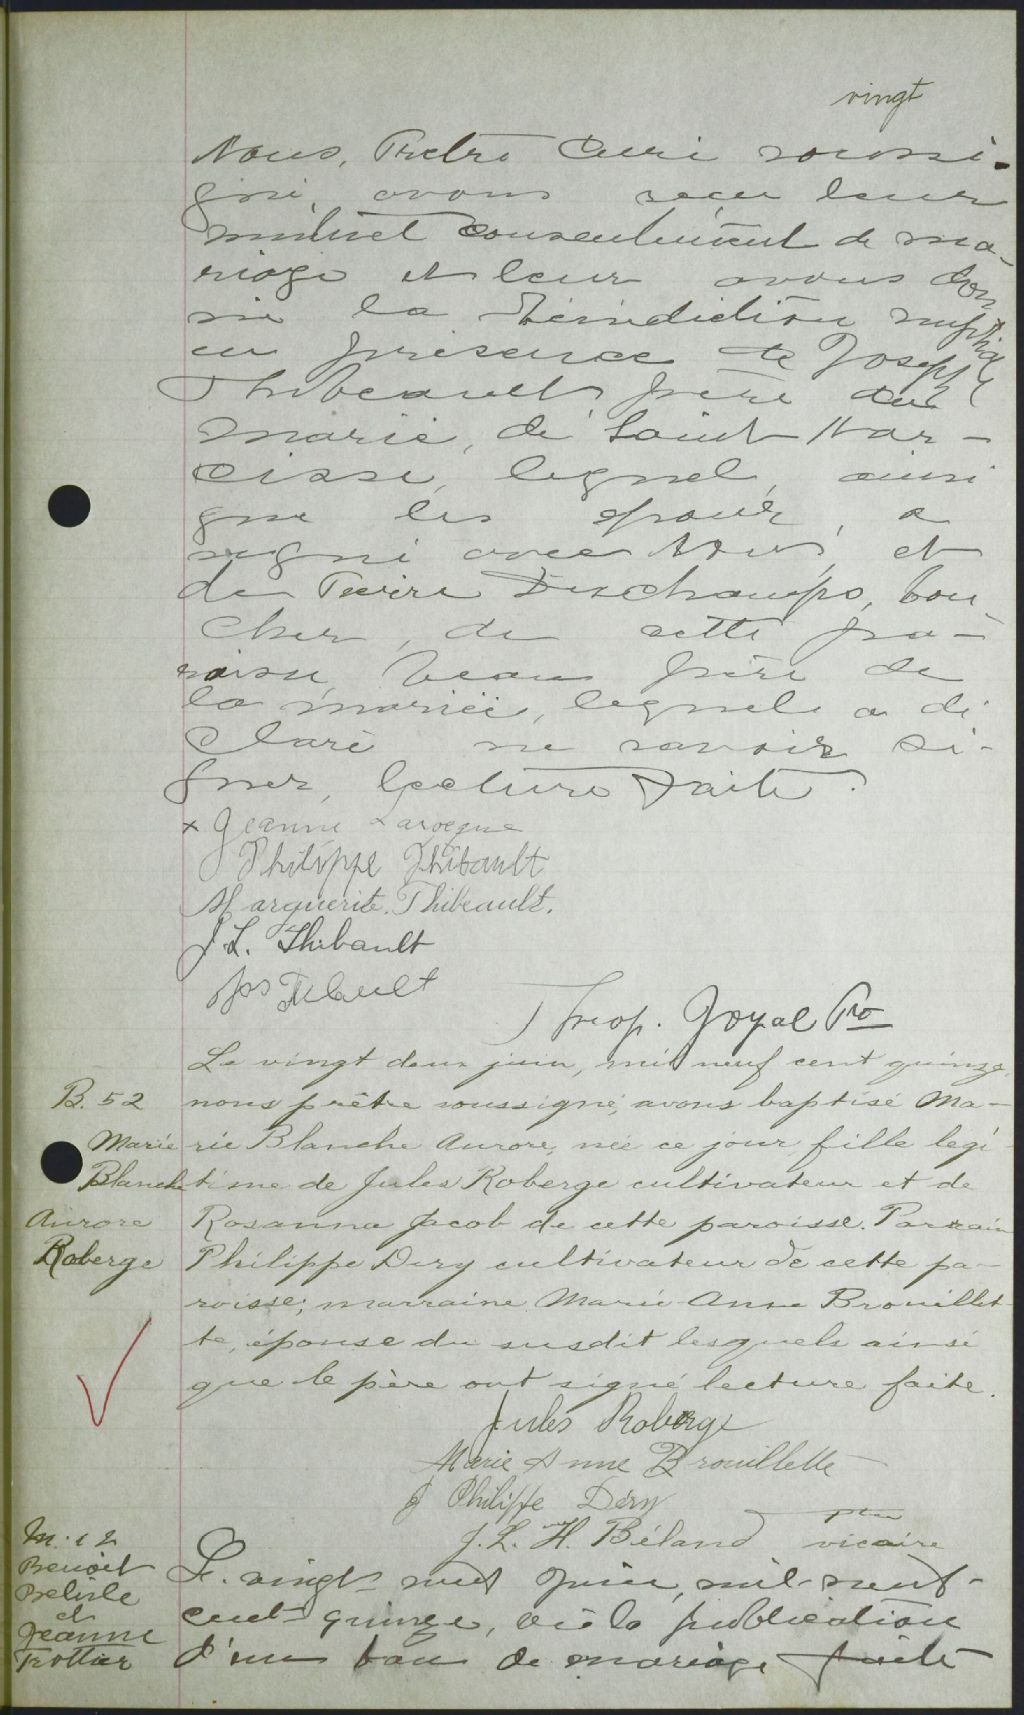 vingt
Nous, Prêtre Curé soussi-
gné, avons reçu leur
mutuel consentement de ma-
riage et leur avons don
né la bénédiction nuptiale
en présence de Joseph
Thibeault frère du
marié, de Saint Nar-
cisse, lequel, ainsi
que les époux, a
signé avec Nous, et
de Pierre Deschamps, bou-
cher, de cette pa-
roisse, beau père de
la mariée, lequel a dé
claré ne savoir si-
gner, lecture faite.
x Jeanne Larocque
Philippe Thibault
Marguerite Thibeault.
J. L. Thibault
Jos Tibault
Theop. Joyal Ptre
Le vingt deux juin, mil neuf cent quinze,
B. 52 nous prêtre soussigné, avons baptisé Ma-
Marie rie Blanche Aurore, née ce jour fille légi-
Blanche time de Jules Roberge cultivateur et de
Aurore Rosanna Jacob de cette paroisse. Parrain
Roberge Philippe Dery cultivateur de cette pa-
roisse; marraine Marie Anne Brouillet-
te, épouse du susdit lesquels ainsi
que le père ont signé lecture faite.
Jules Roberge
Marie Anne Brouillette
J Philippe Déry
J. L. H. Béland ptre vicaire
M. 12
Benoit
Belisle
et
Jeanne
Trottier
Le vingt neuf Juin, mil-neuf-
cent-quinze, vu la publication
d'un ban de mariage faite